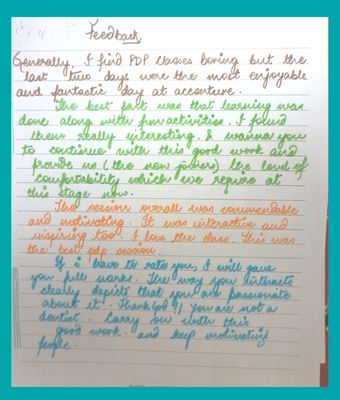 Feedback
Generally, I find PDP classes boring but the
last two days were the most enjoyable
and fantastic day at accenture.
The best part was that learning was
done along with fun activities. I found
them really interesting. I wanna you
to continue with this good work and
provide us (the new joiners) the level of
comfortability which we require at
this stage now.
The session overall was commendable
and motivating. It was interactive and
inspiring too. I love the class. This was
the best pdp session.
If i have to rate you, I will gave
you full marks. The way you interacts
clearly depicts that you are passionate
about it. Thank God!! You are not a
dentist. Carry on with this
good work. and keep motivating
people.